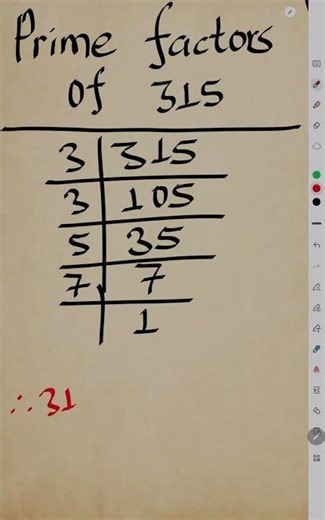 Prime factors
of 315
3 315
3 105
5 35
7 7
1
∴ 31